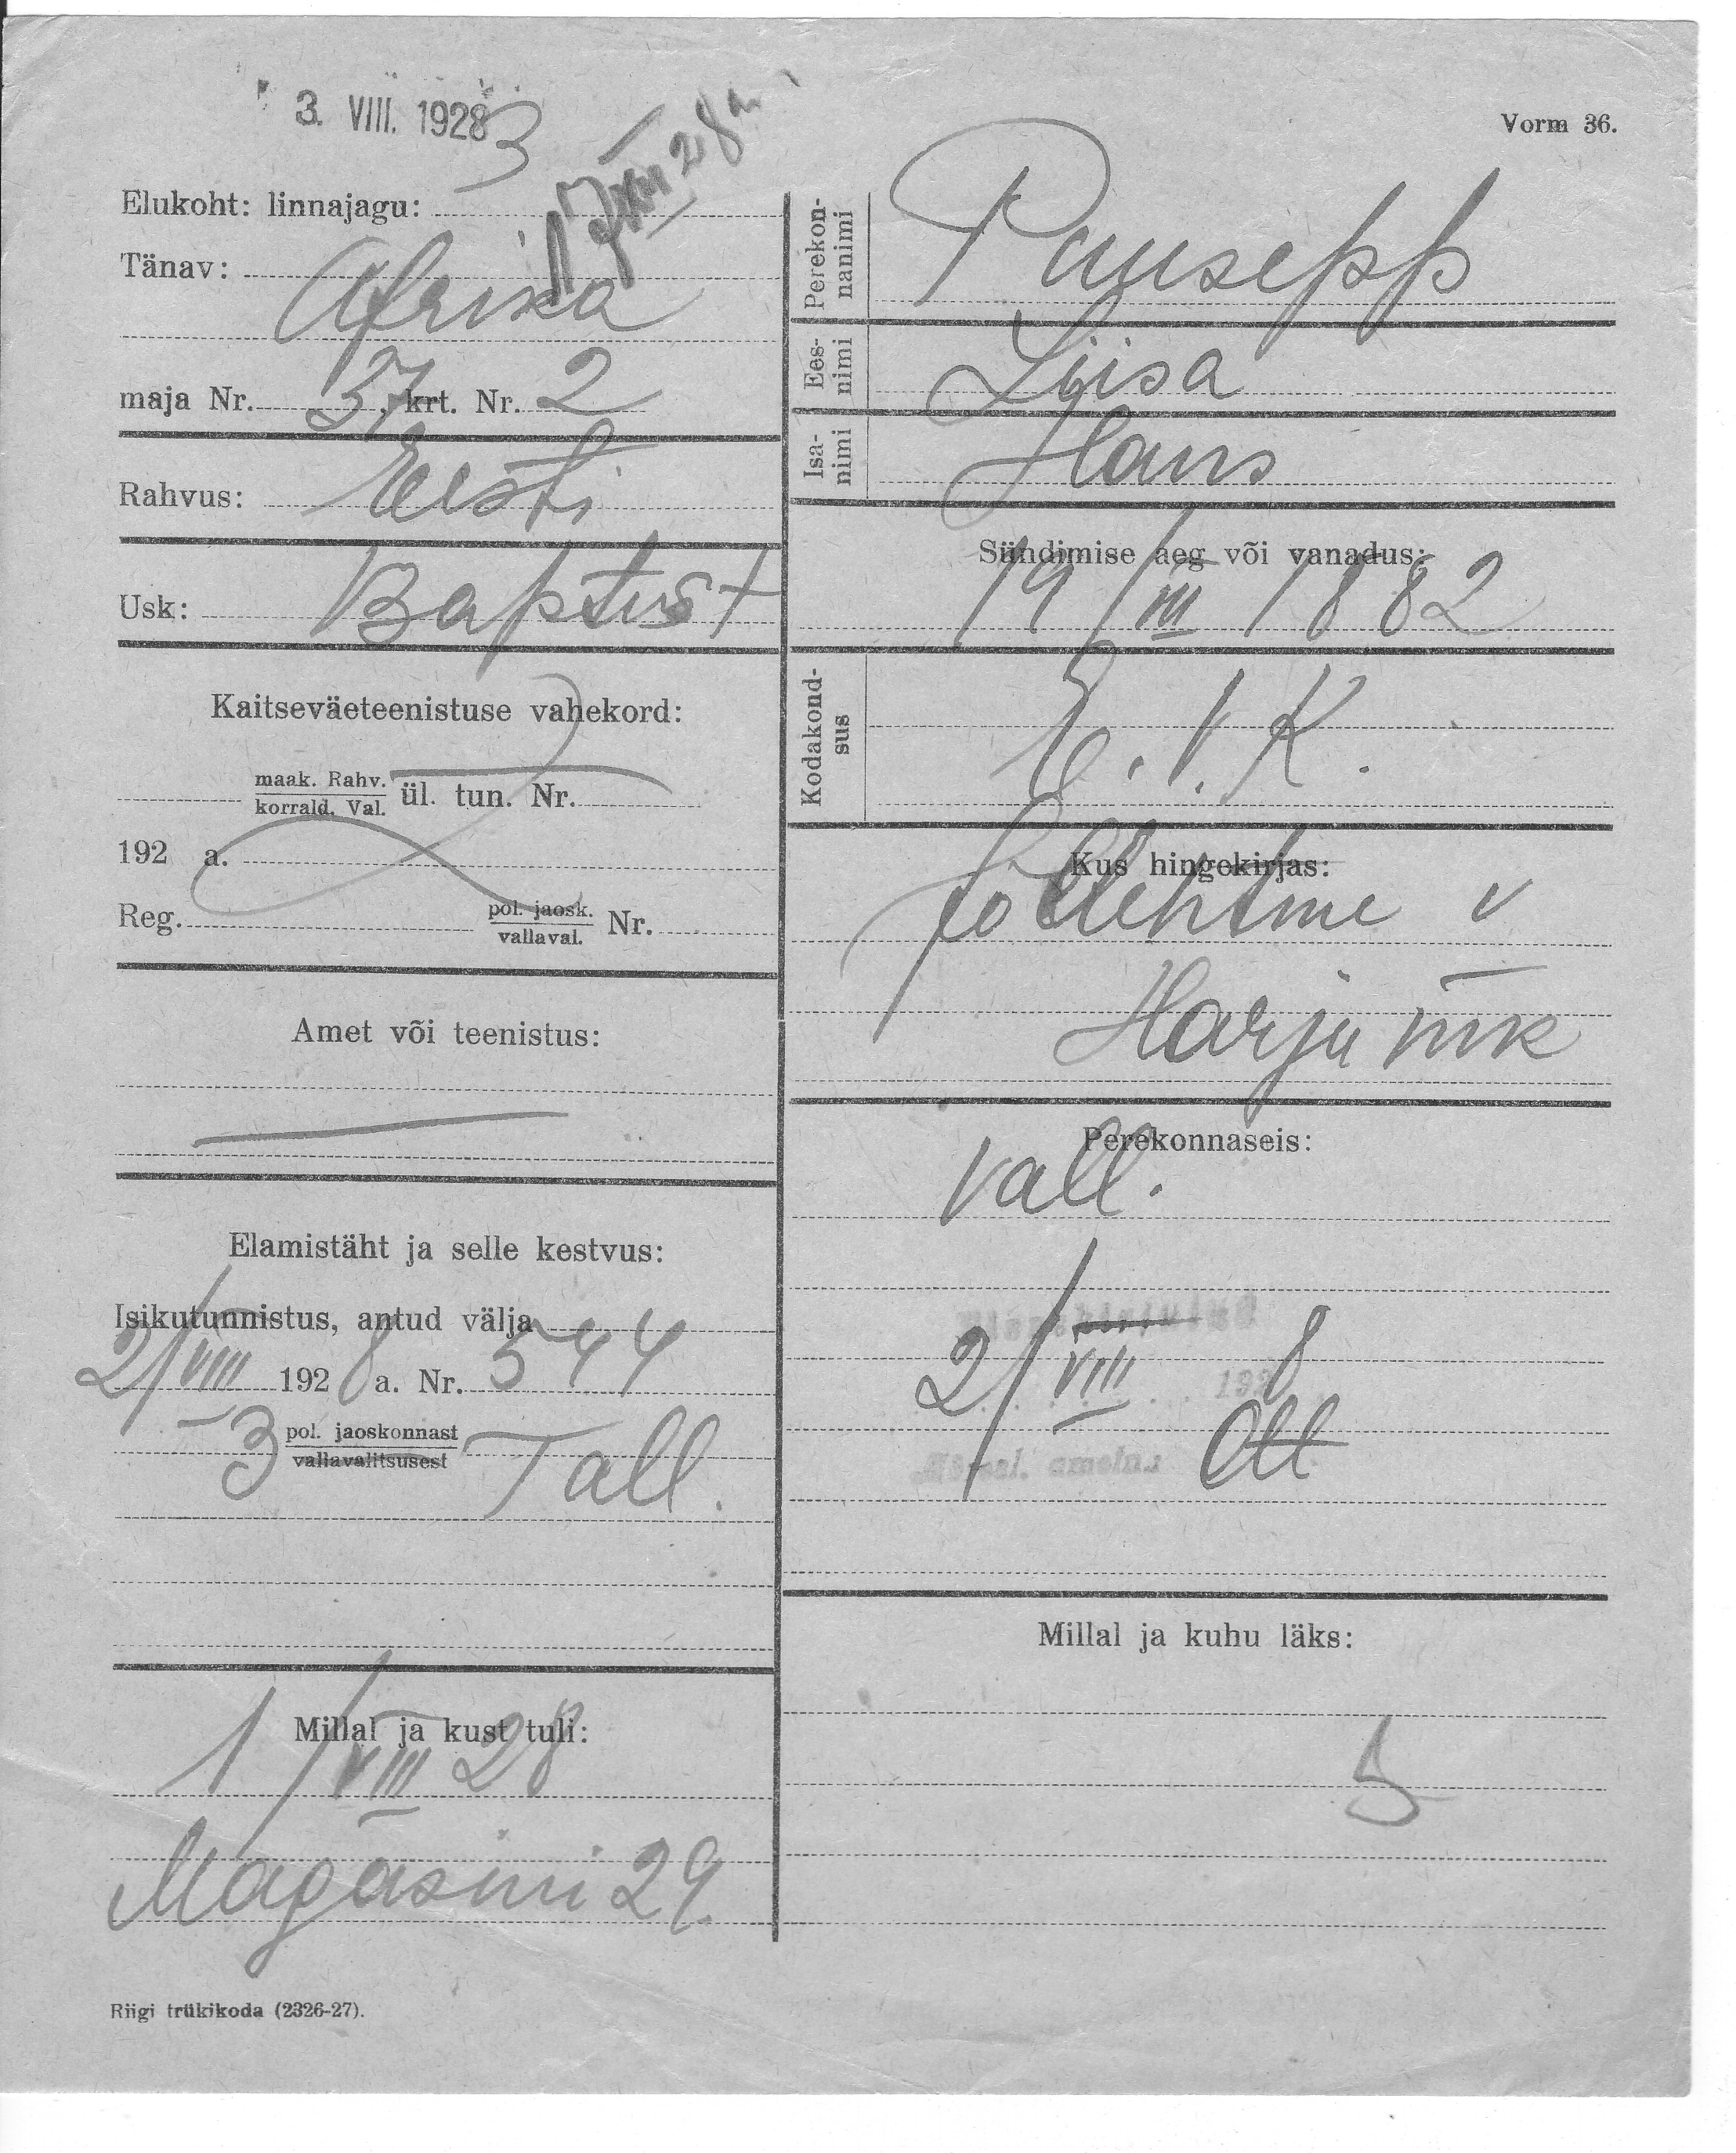 3. VIII. 1928
3
17/XII 28 a.
Vorm 36.
Elukoht: linnajagu:
Tänav:
Afrika
maja Nr. 37, krt. Nr. 2
Rahvus: Eesti
Usk: Baptist
Kaitseväeteenistuse vahekord:
maak. Rahv.
korrald. Val. ül. tun. Nr.
192 a.
Reg. pol. jaosk.
vallaval. Nr.
Amet või teenistus:
Elamistäht ja selle kestvus:
Isikutunnistus, antud välja
2/VIII 1928 a. Nr. 544
3 pol. jaoskonnast
vallavalitsusest Tall.
Millal ja kust tuli:
1/VIII 28
Magasini 29
Riigi trükikoda (2326-27).
Perekon-
nanimi
Puusepp
Ees-
nimi
Liisa
Isa-
nimi
Hans
Sündimise aeg või vanadus:
19/III 1882
Kodakond-
sus
E. V. K.
Kus hingekirjas:
Jõelehtme v
Harju mk
Perekonnaseis:
Vall.
2/VIII 8
192
Ott
Millal ja kuhu läks:
5